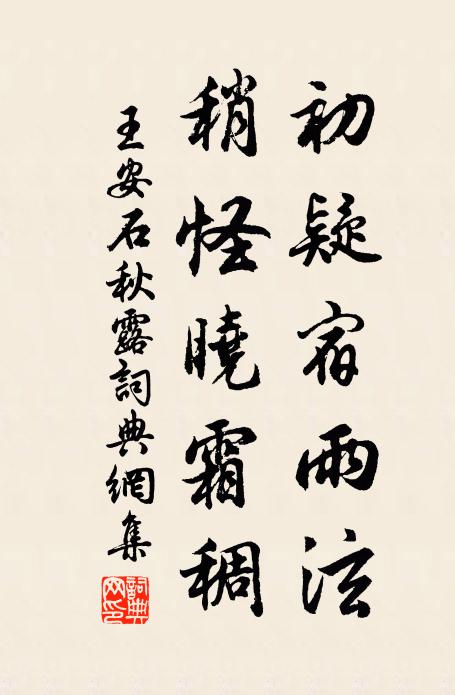 初疑宿雨泫
稍怪曉霜稠
王安石秋露詞典網集
詞典网印